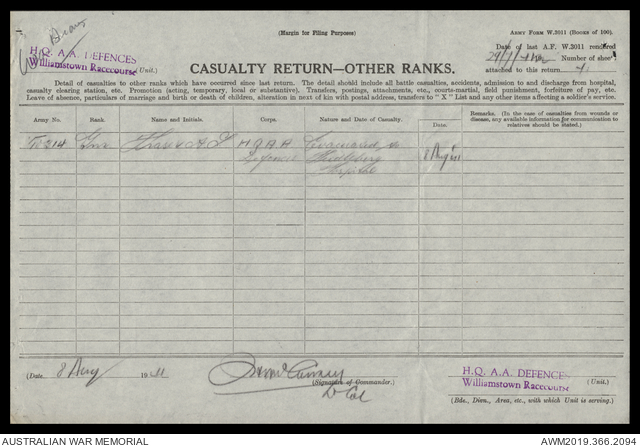 (Margin for Filing Purposes)
ARMY FORM W.2011 (BOOKS OF 100).
H.Q. A.A. DEFENCES
Williamstown Racecourse (Unit.)
Date of last A.F. W.2011 rendered
29/7/ Number of sheets
attached to this return 1
CASUALTY RETURN—OTHER RANKS.
Detail of casualties to other ranks which have occurred since last return. The detail should include all battle casualties, accidents, admission to and discharge from hospital,
casualty clearing station, etc. Promotion (acting, temporary, local or substantive). Transfers, postings, attachments, etc., courts-martial, field punishment, forfeiture of pay, etc.
Leave of absence, particulars of marriage and birth or death of children, alteration in next of kin with postal address, transfers to "X" List and any other items affecting a soldier's service.
Army No. Rank. Name and Initials. Corps. Nature and Date of Casualty. Date. Remarks. (In the case of casualties from wounds or
disease, any available information for communication to
relatives should be stated.)
Gnr. HQ AA Evacuated to
Defences Heidelberg
Hospital
(Date 8 Aug 1941
(Signature of Commander.)
Lt Col
H.Q. A.A. DEFENCES
Williamstown Racecourse (Unit.)
(Bde., Divn., Area, etc., with which Unit is serving.)
AUSTRALIAN WAR MEMORIAL AWM2019.366.2094